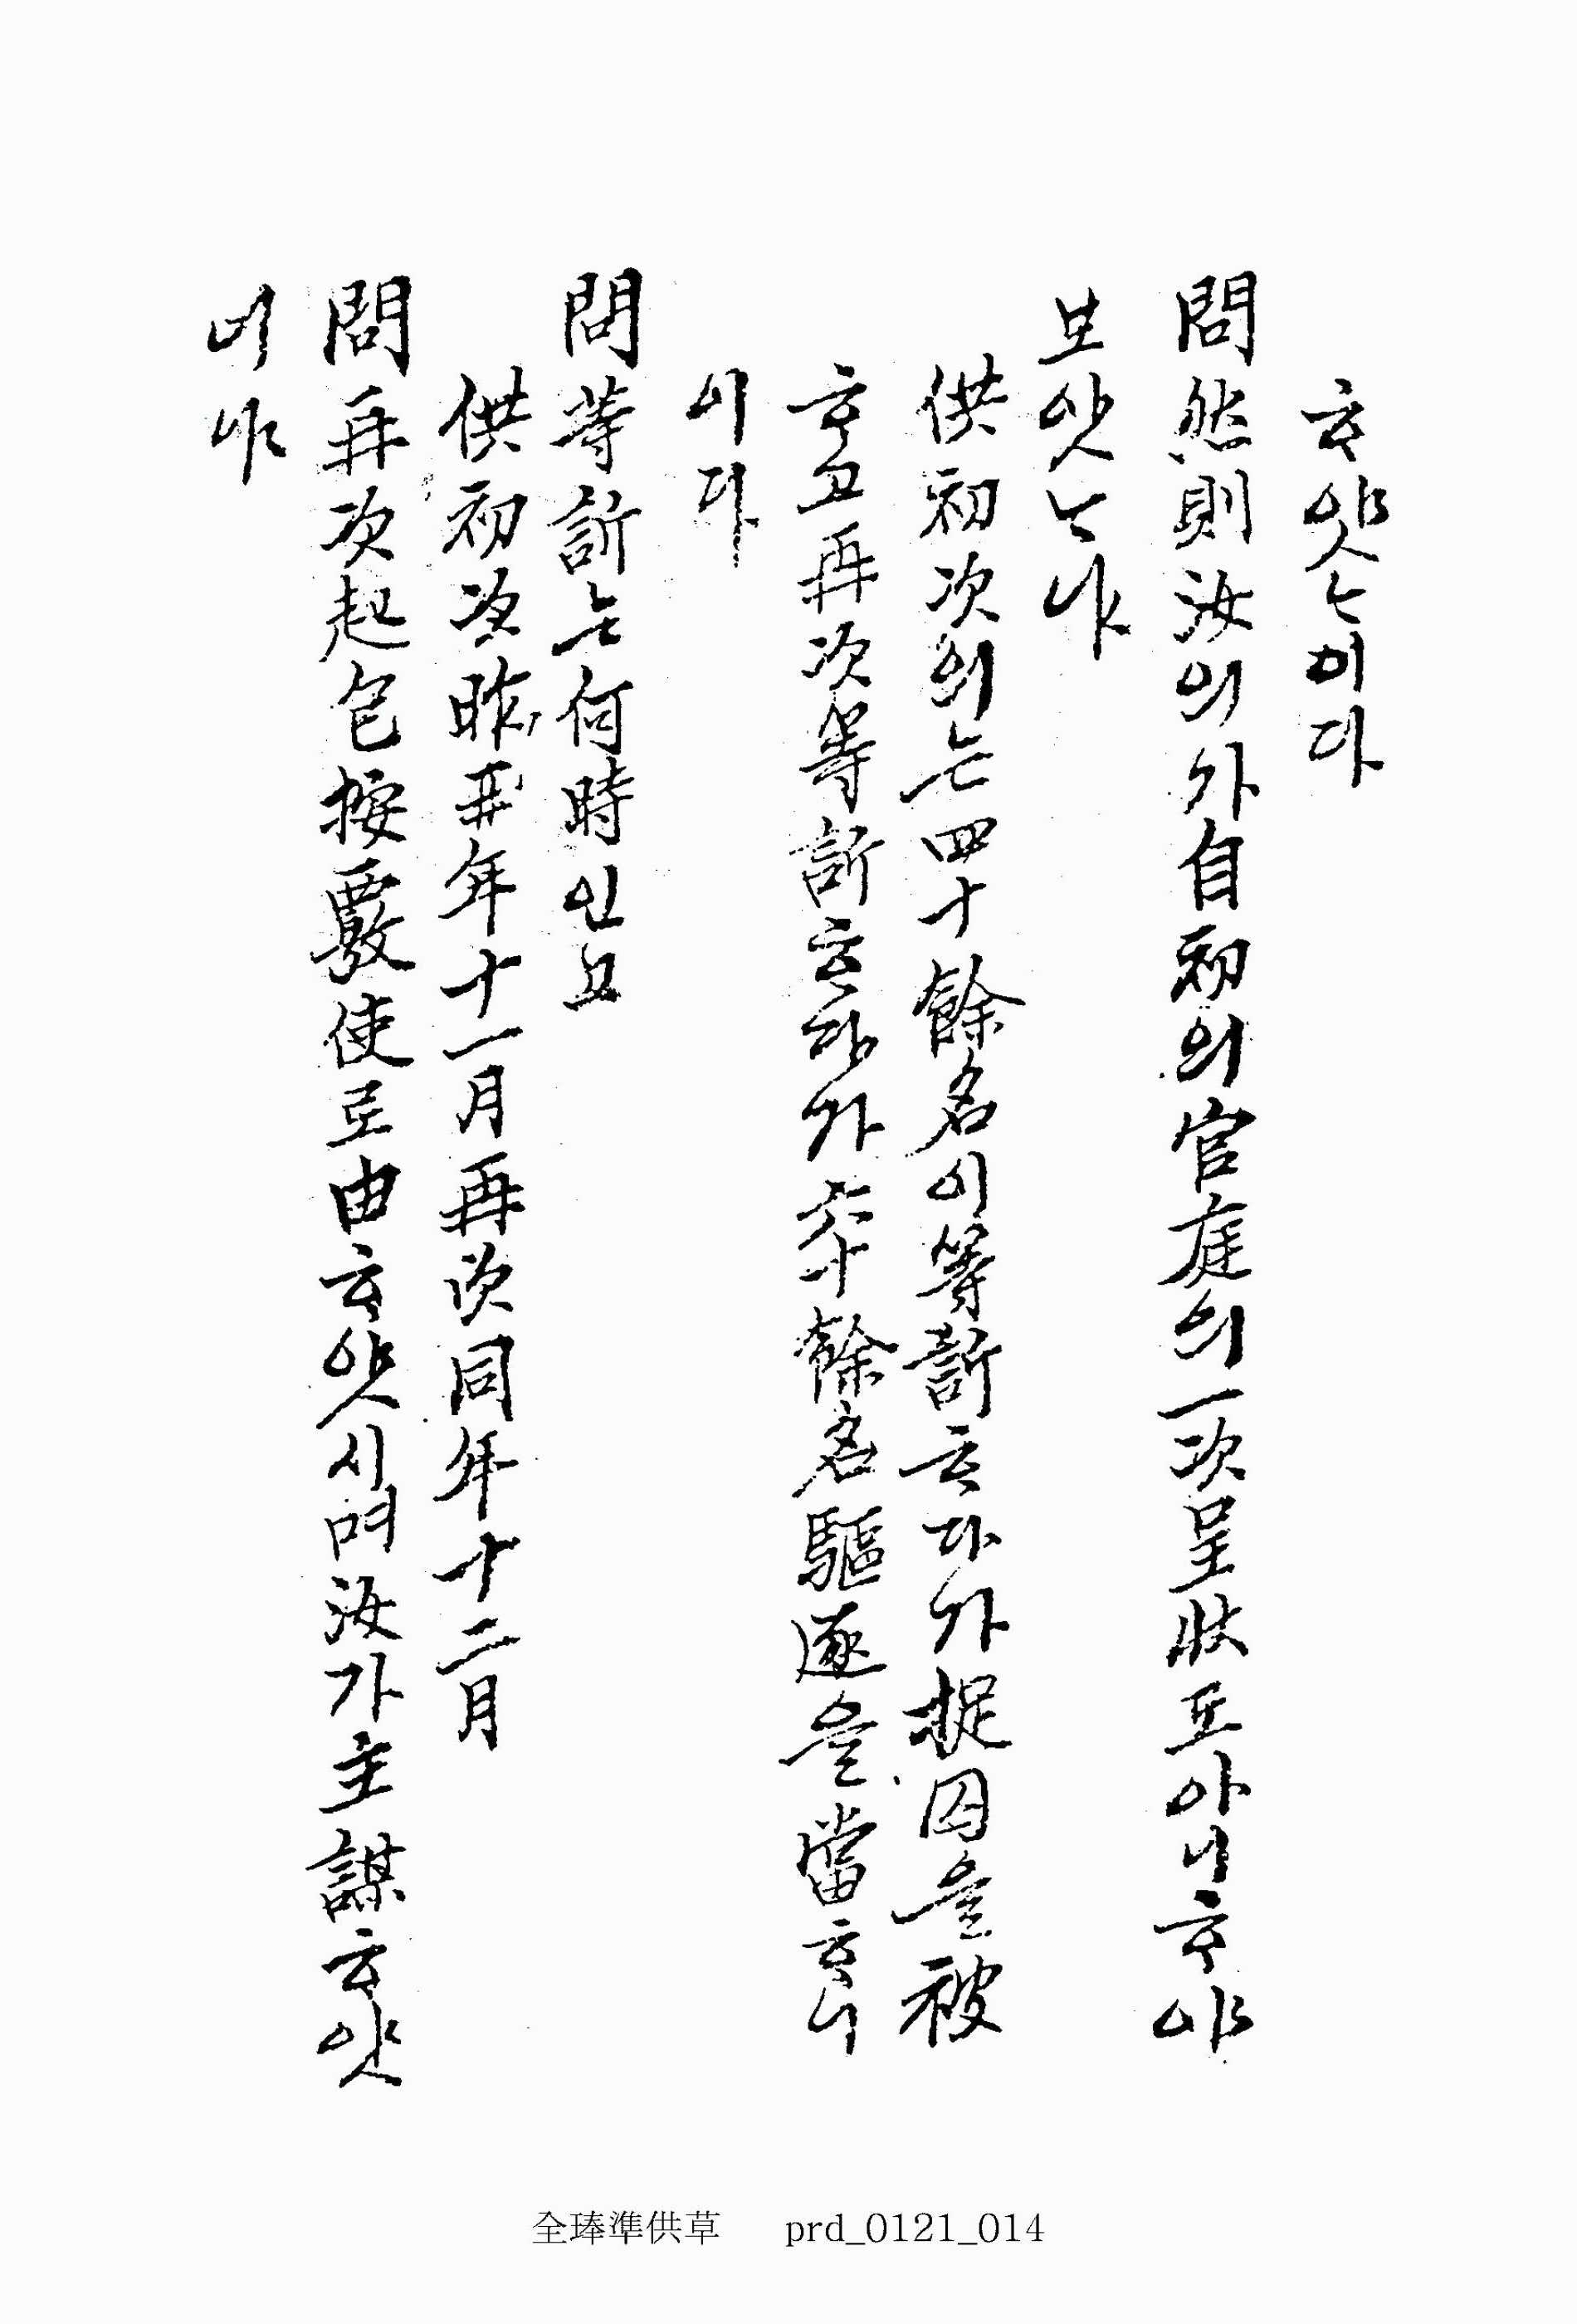 ᄒᆞ얏ᄂᆞ이다
問然則汝의外自初의官庭의一次呈狀도아니ᄒᆞ야
보앗ᄂᆞ냐
供初次의ᄂᆞᆫ四十餘名이等訴ᄒᆞ다가捉囚을被
ᄒᆞ고再次等訴ᄒᆞ다가六十餘名驅逐을當ᄒᆞ니
이다
問等訴ᄂᆞᆫ何時인고
供初次昨再年十一月再次同年十二月
問再次起包按覈使로由ᄒᆞ얏시며汝가主謀ᄒᆞ얏
ᄂᆞ냐
全琫準供草 prd_0121_014